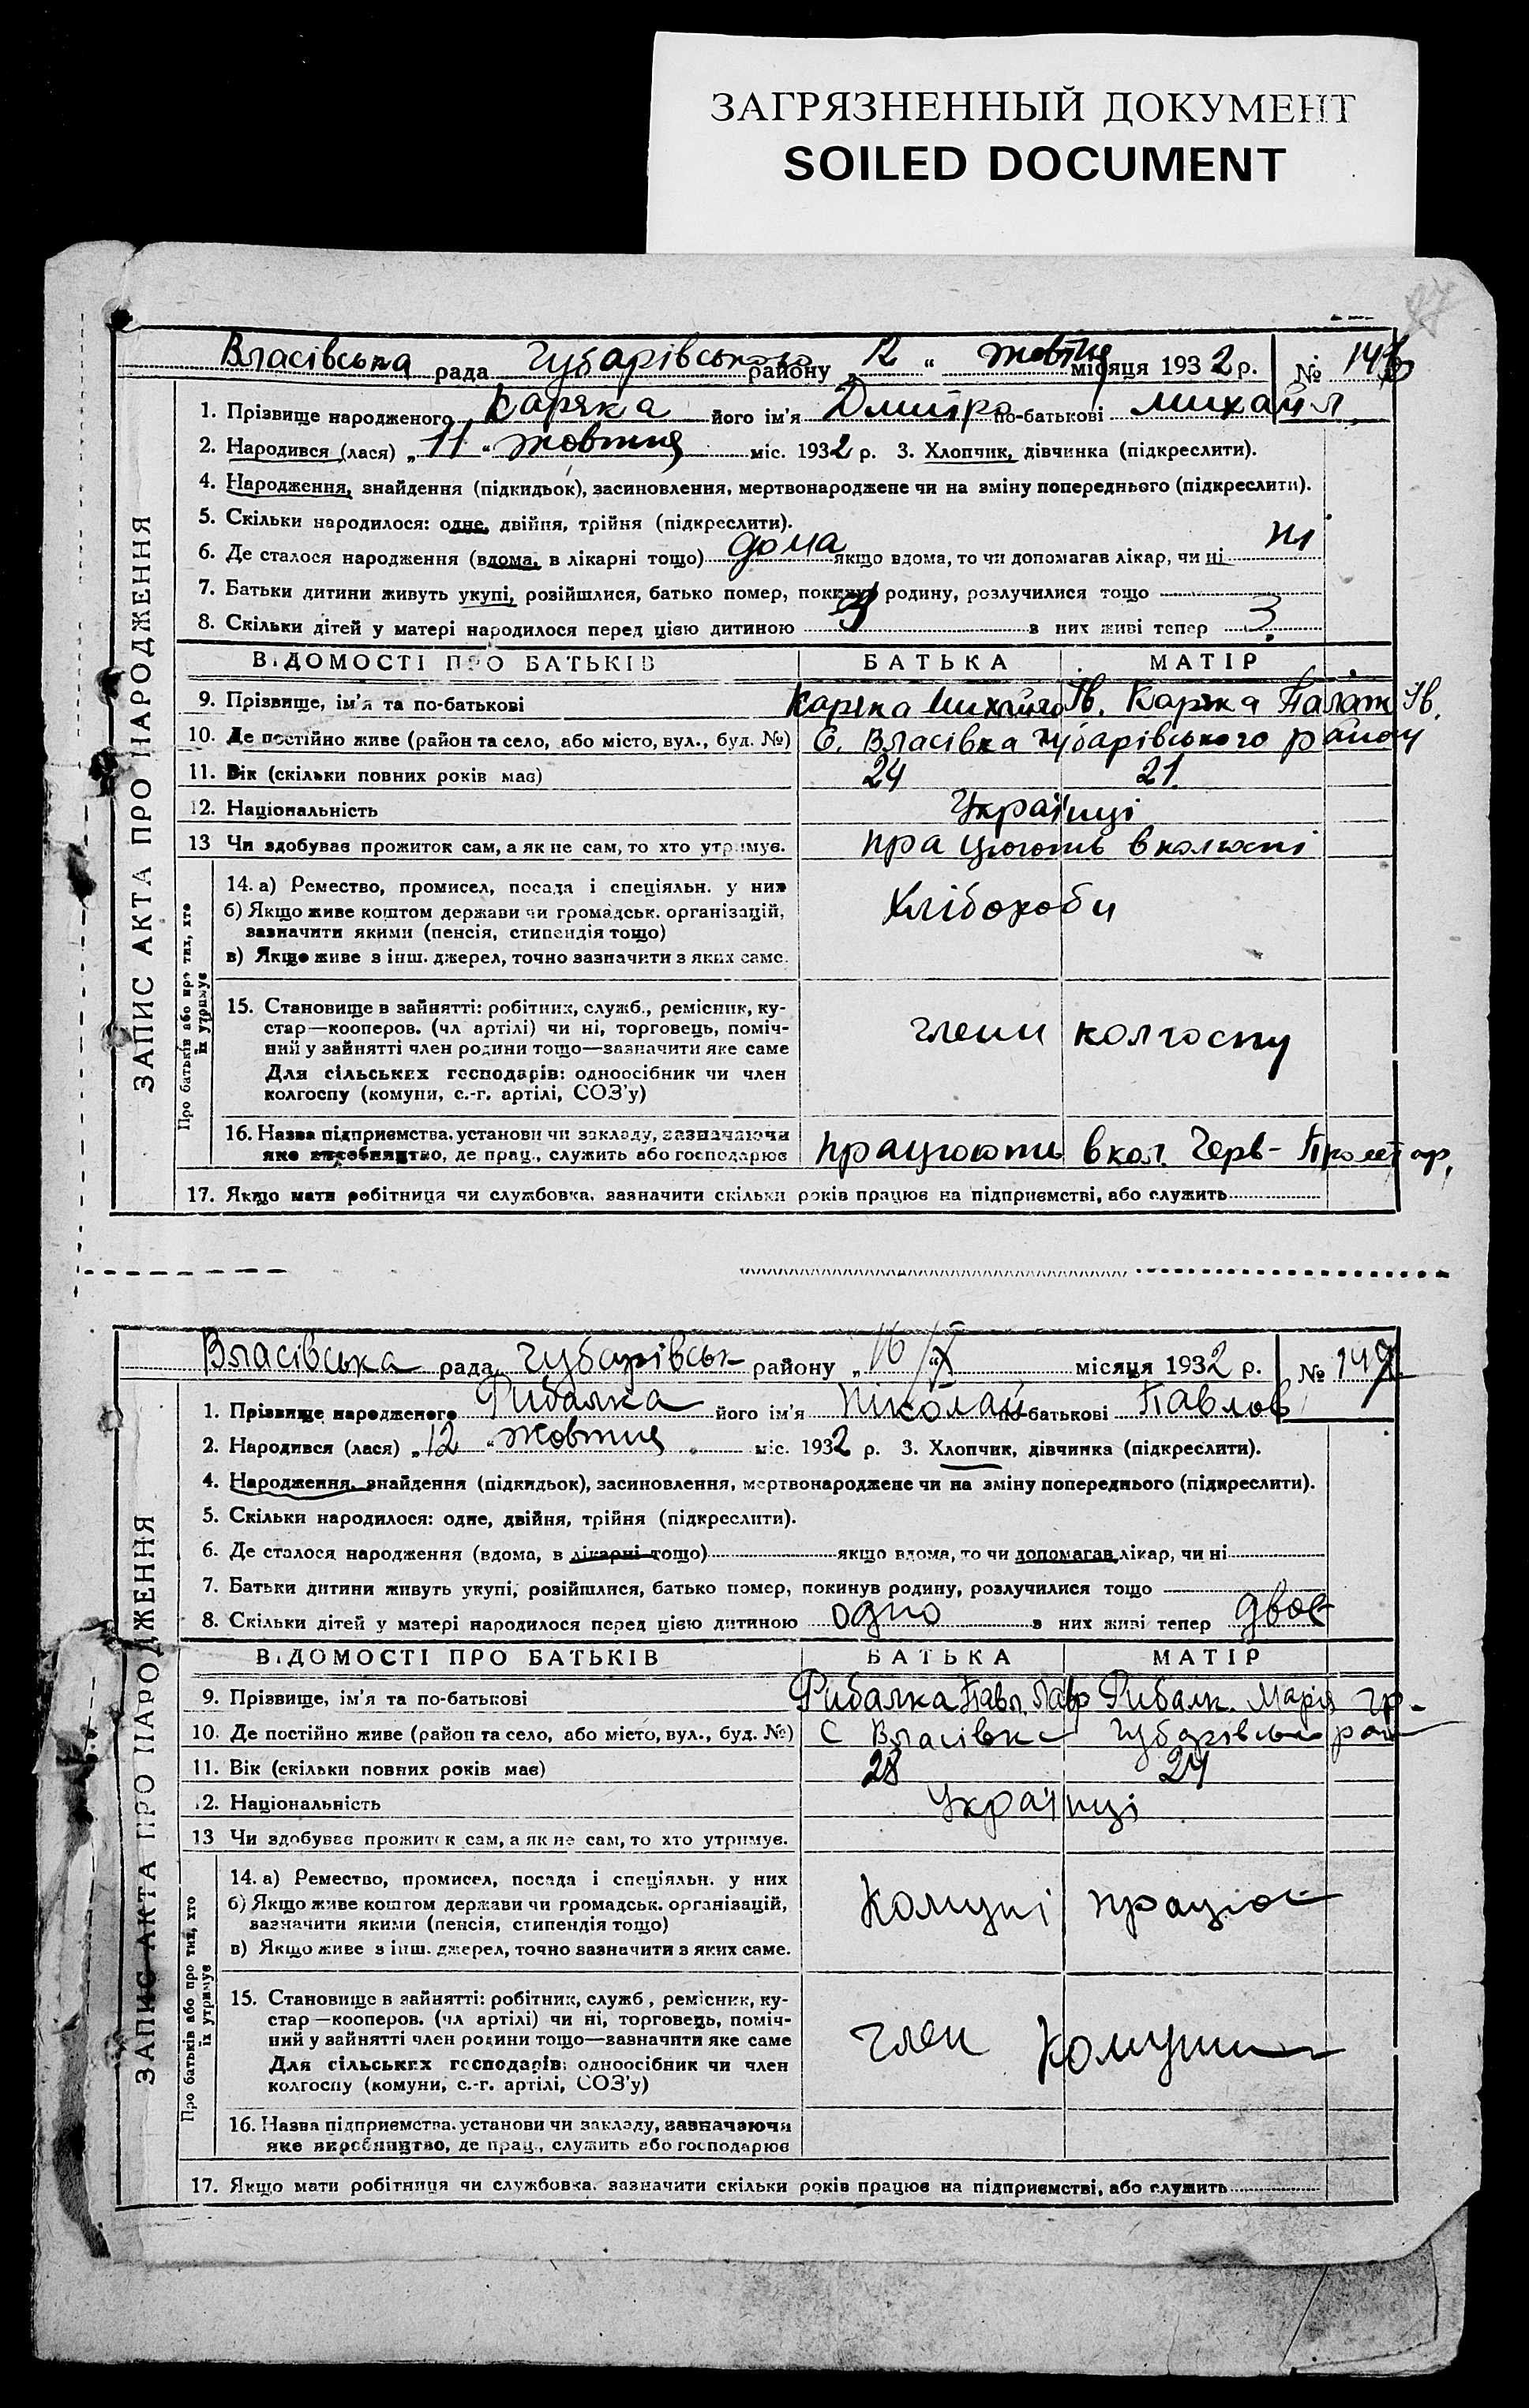 ЗАГРЯЗНЕННЫЙ ДОКУМЕНТ
SOILED DOCUMENT
ЗАПИС АКТА ПРО НАРОДЖЕННЯ
Власівська рада Губарівського району „12“ жовтня місяця 1932 р. №
1. Прізвище народженого Каряка його ім'я Дмитро по-батькові Михайл
2. Народився (лася) „11“ жовтня міс. 1932 р. 3. Хлопчик, дівчинка (підкреслити).
4. Народження, знайдення (підкидьок), засиновлення, мертвонароджене чи на зміну попереднього (підкреслити).
5. Скільки народилося: одне, двійня, трійня (підкреслити).
6. Де сталося народження (вдома, в лікарні тощо) дома якщо вдома, то чи допомагав лікар, чи ні ні
7. Батьки дитини живуть укупі, розійшлися, батько помер, покинув родину, розлучилися тощо
8. Скільки дітей у матері народилося перед цією дитиною 3 з них живі тепер 3
ВІДОМОСТІ ПРО БАТЬКІВ БАТЬКА МАТІР
9. Прізвище, ім'я та по-батькові Каряка Михайло Ів. Каряка Палаж Ів.
10. Де постійно живе (район та село, або місто, вул., буд. №) С. Власівка Губарівського району
11. Вік (скільки повних років має) 24 21
12. Національність Українці
13 Чи здобуває прожиток сам, а як не сам, то хто утримує. працюють в колгоспі
Про батьків або про тих, хто їх утримує
14. а) Ремество, промисел, посада і спеціяльн. у них Хлібороби
б) Якщо живе коштом держави чи громадськ. організацій,
зазначити якими (пенсія, стипендія тощо)
в) Якщо живе з інш. джерел, точно зазначити з яких саме.
15. Становище в зайнятті: робітник, служб., ремісник, ку-
стар—кооперов. (чл артілі) чи ні, торговець, поміч-
ний у зайнятті член родини тощо—зазначити яке саме члени колгоспу
Для сільських господарів: одноосібник чи член
колгоспу (комуни, с.-г. артілі, СОЗ'у)
16. Назва підприємства, установи чи закладу, зазначаючи
яке виробництво, де прац., служить або господарює працюють в кол. Черв- Пролетар.
17. Якщо мати робітниця чи службовка, зазначити скільки років працює на підприємстві, або служить
ЗАПИС АКТА ПРО НАРОДЖЕННЯ
Власівська рада Губарівськ району „16/X“ місяця 1932 р. № 149
1. Прізвище народженого Рибалка його ім'я Ніколай по-батькові Павлов
2. Народився (лася) „12“ жовтня міс. 1932 р. 3. Хлопчик, дівчинка (підкреслити).
4. Народження, знайдення (підкидьок), засиновлення, мертвонароджене чи на зміну попереднього (підкреслити).
5. Скільки народилося: одне, двійня, трійня (підкреслити).
6. Де сталося народження (вдома, в лікарні тощо) якщо вдома, то чи допомагав лікар, чи ні
7. Батьки дитини живуть укупі, розійшлися, батько помер, покинув родину, розлучилися тощо
8. Скільки дітей у матері народилося перед цією дитиною одно з них живі тепер двоє
ВІДОМОСТІ ПРО БАТЬКІВ БАТЬКА МАТІР
9. Прізвище, ім'я та по-батькові Рибалка Павл. Лавр Рибалк. Марія Гр.
10. Де постійно живе (район та село, або місто, вул., буд. №) С Власівка Губарівськ рай
11. Вік (скільки повних років має) 28 24
12. Національність Українці
13 Чи здобуває прожиток сам, а як не сам, то хто утримує.
Про батьків або про тих, хто їх утримує
14. а) Ремество, промисел, посада і спеціяльн. у них
б) Якщо живе коштом держави чи громадськ. організацій, Комуні працює
зазначити якими (пенсія, стипендія тощо)
в) Якщо живе з інш. джерел, точно зазначити з яких саме.
15. Становище в зайнятті: робітник, служб., ремісник, ку-
стар—кооперов. (чл артілі) чи ні, торговець, поміч-
ний у зайнятті член родини тощо—зазначити яке саме член комуни
Для сільських господарів: одноосібник чи член
колгоспу (комуни, с.-г. артілі, СОЗ'у)
16. Назва підприємства, установи чи закладу, зазначаючи
яке виробництво, де прац., служить або господарює
17. Якщо мати робітниця чи службовка, зазначити скільки років працює на підприємстві, або служить